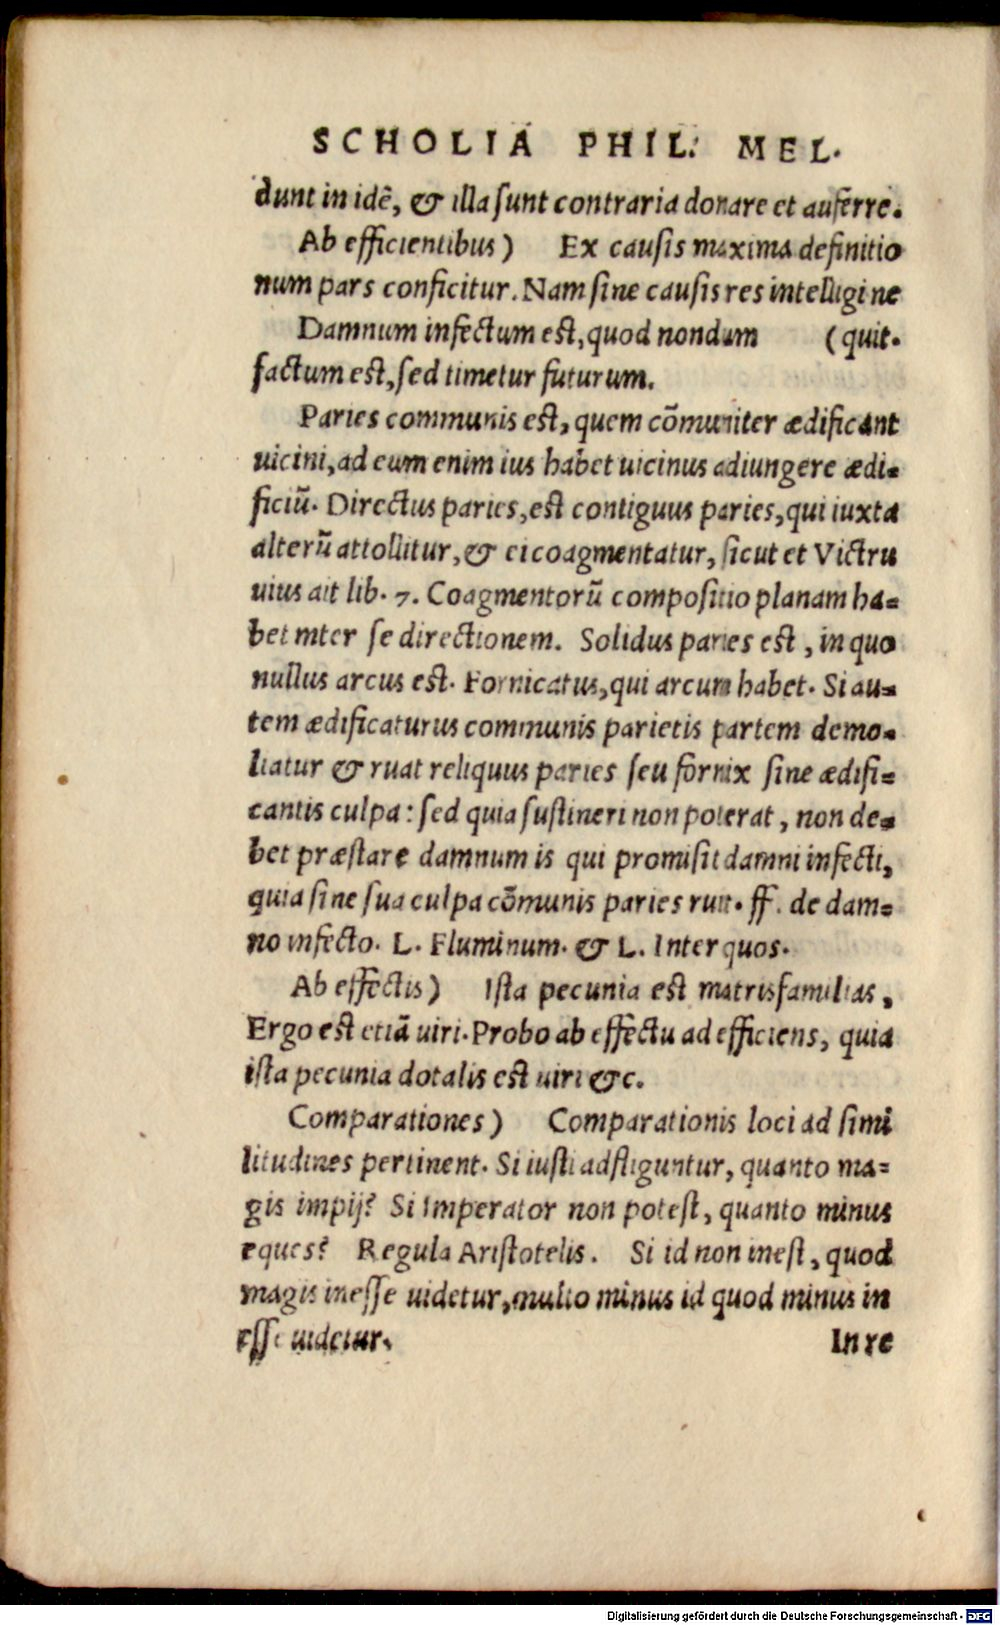 SCHOLIA PHIL. MEL.
dunt in idē, & illa sunt contraria donare et auferre.
Ab efficientibus) Ex causis maxima definitio
num pars conficitur. Nam sine causis res intelligi ne
Damnum infectum est, quod nondum (quit.
factum est, sed timetur futurum.
Paries communis est, quem cōmuniter ædificant
uicini, ad eum enim ius habet uicinus adiungere ædi=
ficiū. Directus paries, est contiguus paries, qui iuxta
alterū attollitur, & ei coagmentatur, sicut et Victru
uius ait lib. 7. Coagmentorū compositio planam ha=
bet inter se directionem. Solidus paries est, in quo
nullus arcus est. Fornicatus, qui arcum habet. Si au=
tem ædificaturus communis parietis partem demo=
liatur & ruat reliquus paries seu fornix sine ædifi=
cantis culpa: sed quia sustineri non poterat, non de=
bet præstare damnum is qui promisit damni infecti,
quia sine sua culpa cōmunis paries ruit. ff. de dam=
no infecto. L. Fluminum. & L. Inter quos.
Ab effectis) Ista pecunia est matrisfamilias,
Ergo est etiā uiri. Probo ab effectu ad efficiens, quia
ista pecunia dotalis est uiri &c.
Comparationes) Comparationis loci ad simi
litudines pertinent. Si iusti adfliguntur, quanto ma=
gis impij? Si Imperator non potest, quanto minus
eques? Regula Aristotelis. Si id non inest, quod
magis inesse uidetur, multo minus id quod minus in
esse uidetur. In re
Digitalisierung gefördert durch die Deutsche Forschungsgemeinschaft - DFG